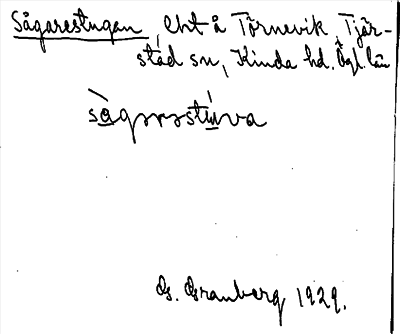 Sågarestugan, lht å Törnevik, Tjär-
stad sn, Kinda hd. Ögl. län
sågarestuva
G. Granberg 1929.